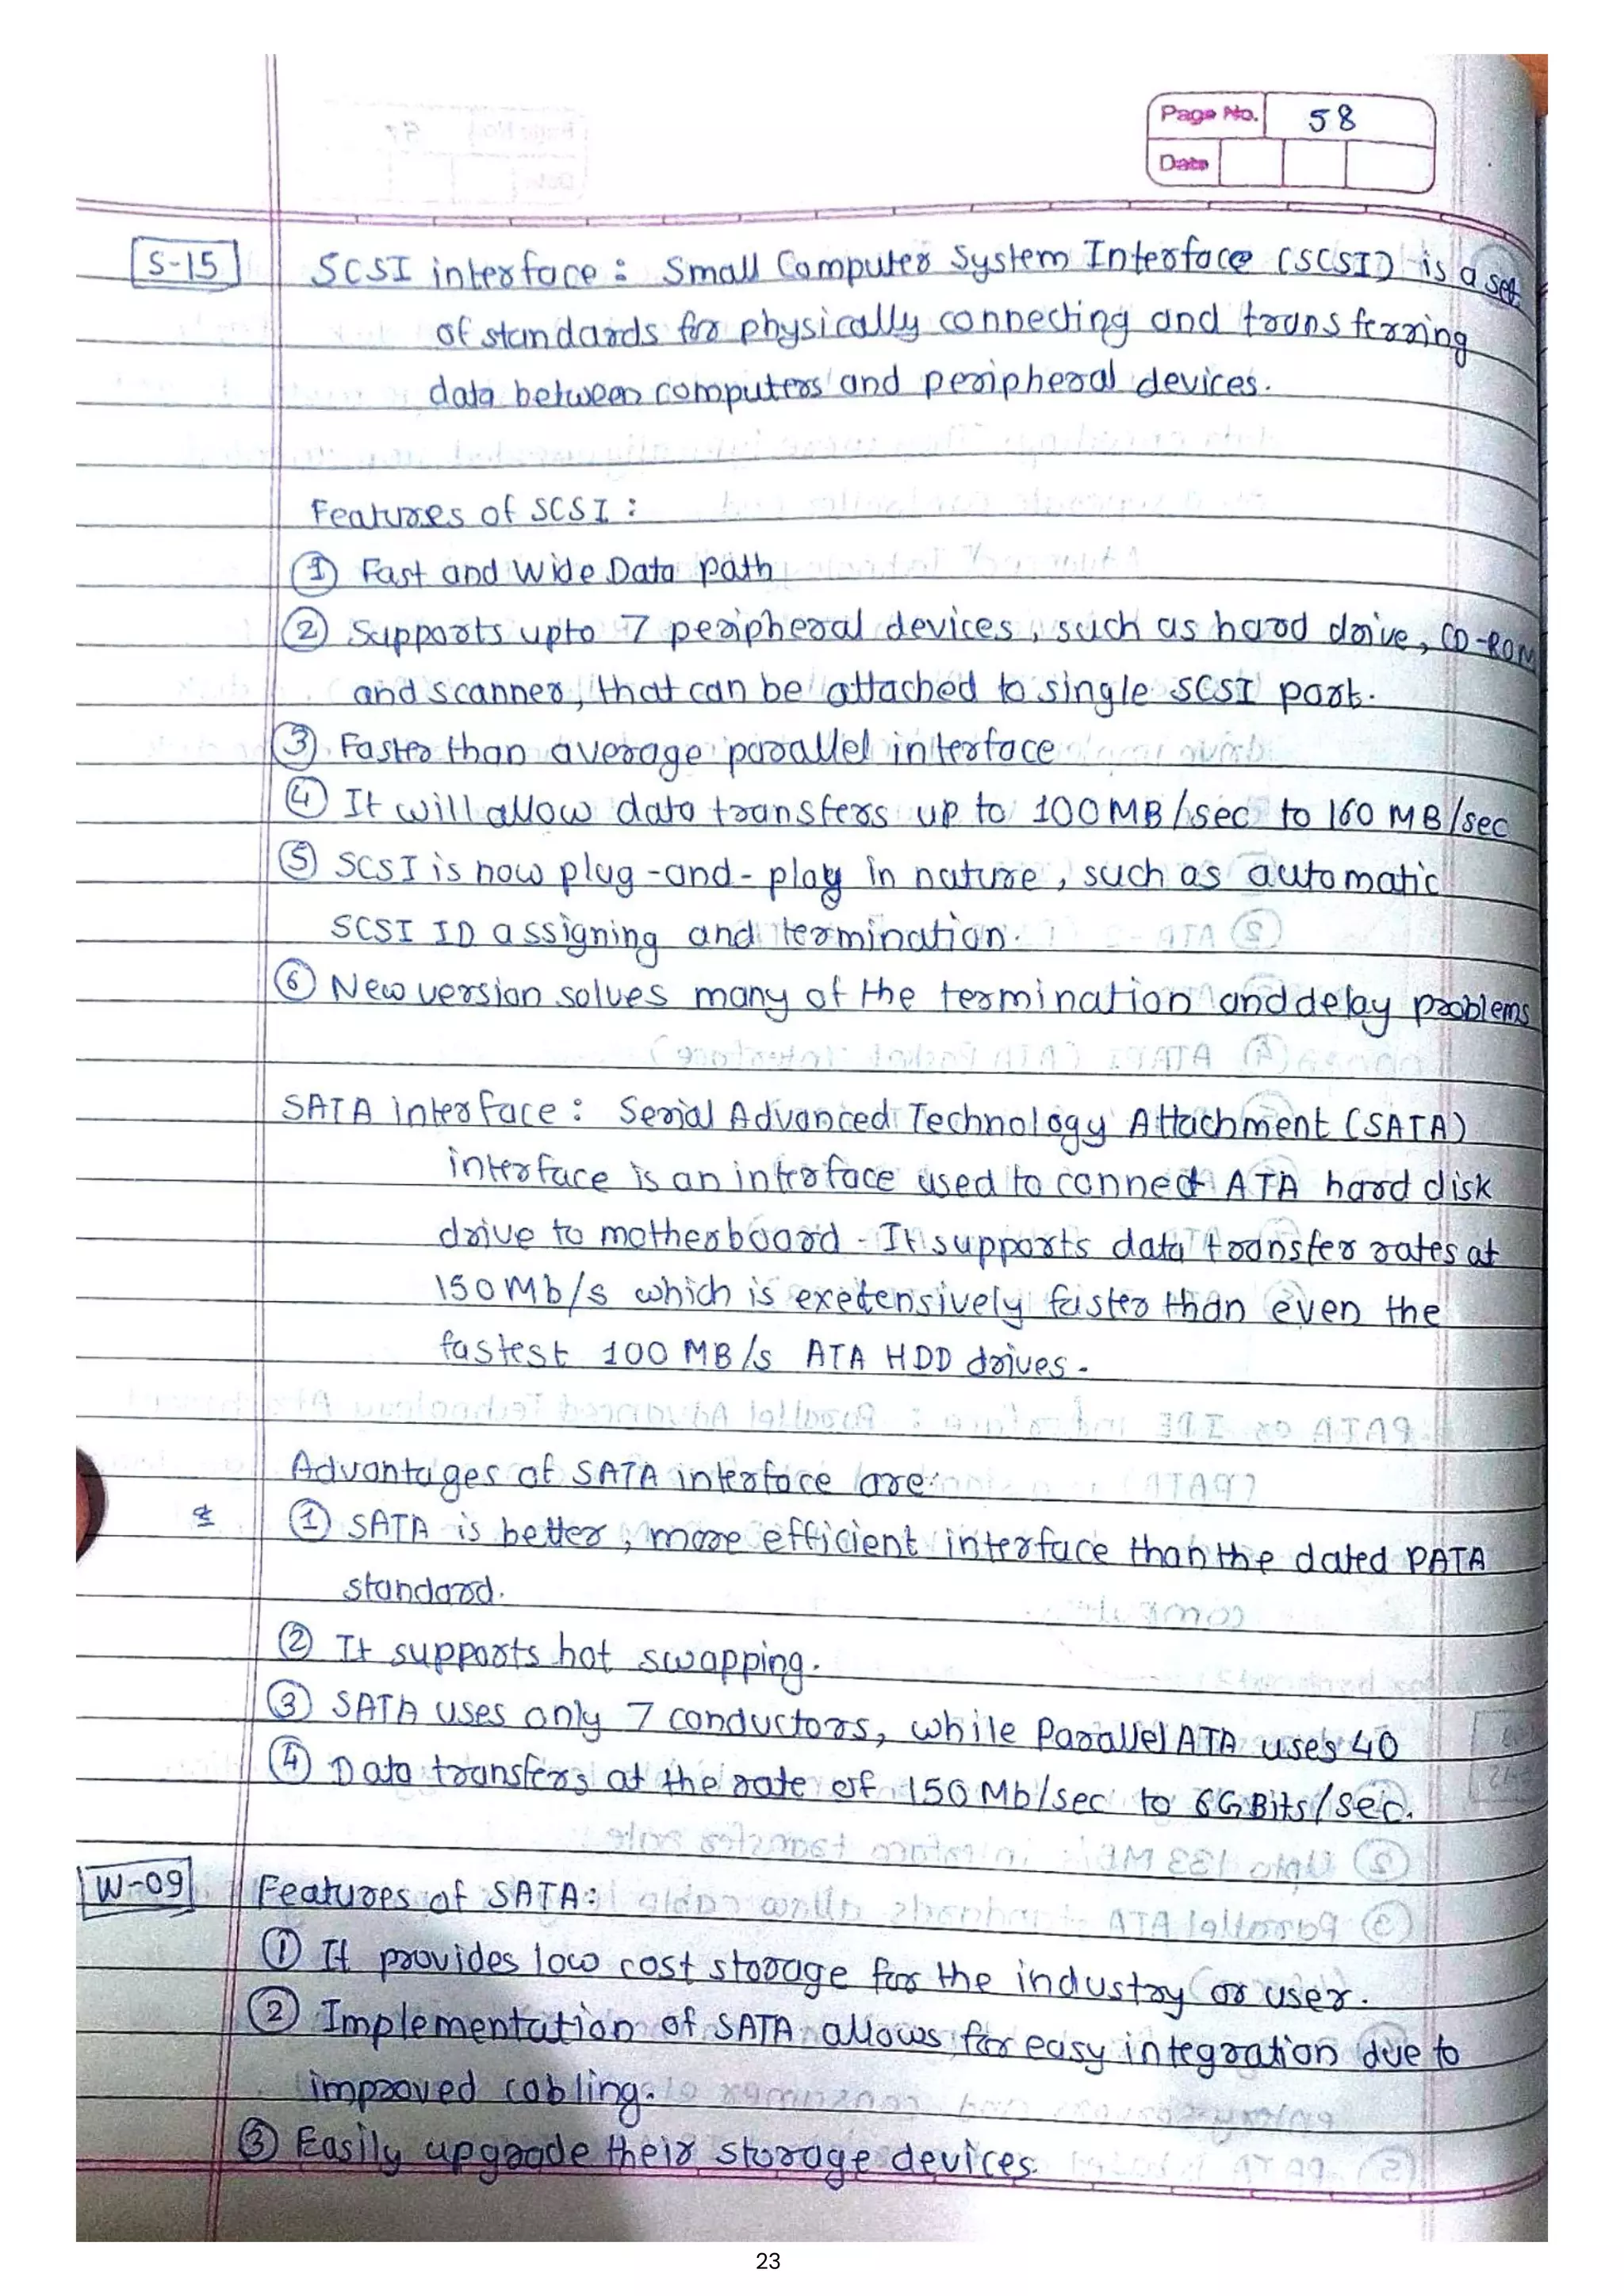 Page No. 58
Date
S-15 SCSI interface : Small Computer System Interface (SCSI) is a set
of standards for physically connecting and transferring
data between computers and peripheral devices.
Features of SCSI :
① Fast and Wide Data path
② Supports upto 7 peripheral devices, such as hard drive, CD-ROM
and scanner, that can be attached to single SCSI port.
③ Faster than average parallel interface
④ It will allow data transfers up to 100MB/sec to 160 MB/sec
⑤ SCSI is now plug-and-play in nature, such as automatic
SCSI ID assigning and termination.
⑥ New version solves many of the termination and delay problems
SATA interface : Serial Advanced Technology Attachment (SATA)
interface is an interface used to connect ATA hard disk
drive to motherboard - It supports data transfer rates at
150Mb/s which is exetensively faster than even the
fastest 100 MB/s ATA HDD drives.
Advantages of SATA interface are:
① SATA is better, more efficient interface than the dated PATA
standard.
② It supports hot swapping.
③ SATA uses only 7 conductors, while Parallel ATA uses 40
④ Data transfers at the rate of 150 Mb/sec to 6GBits/sec.
W-09 Features of SATA:
① It provides low cost storage for the industry or user.
② Implementation of SATA allows for easy integration due to
improved cabling.
③ Easily upgrade their storage devices.
23